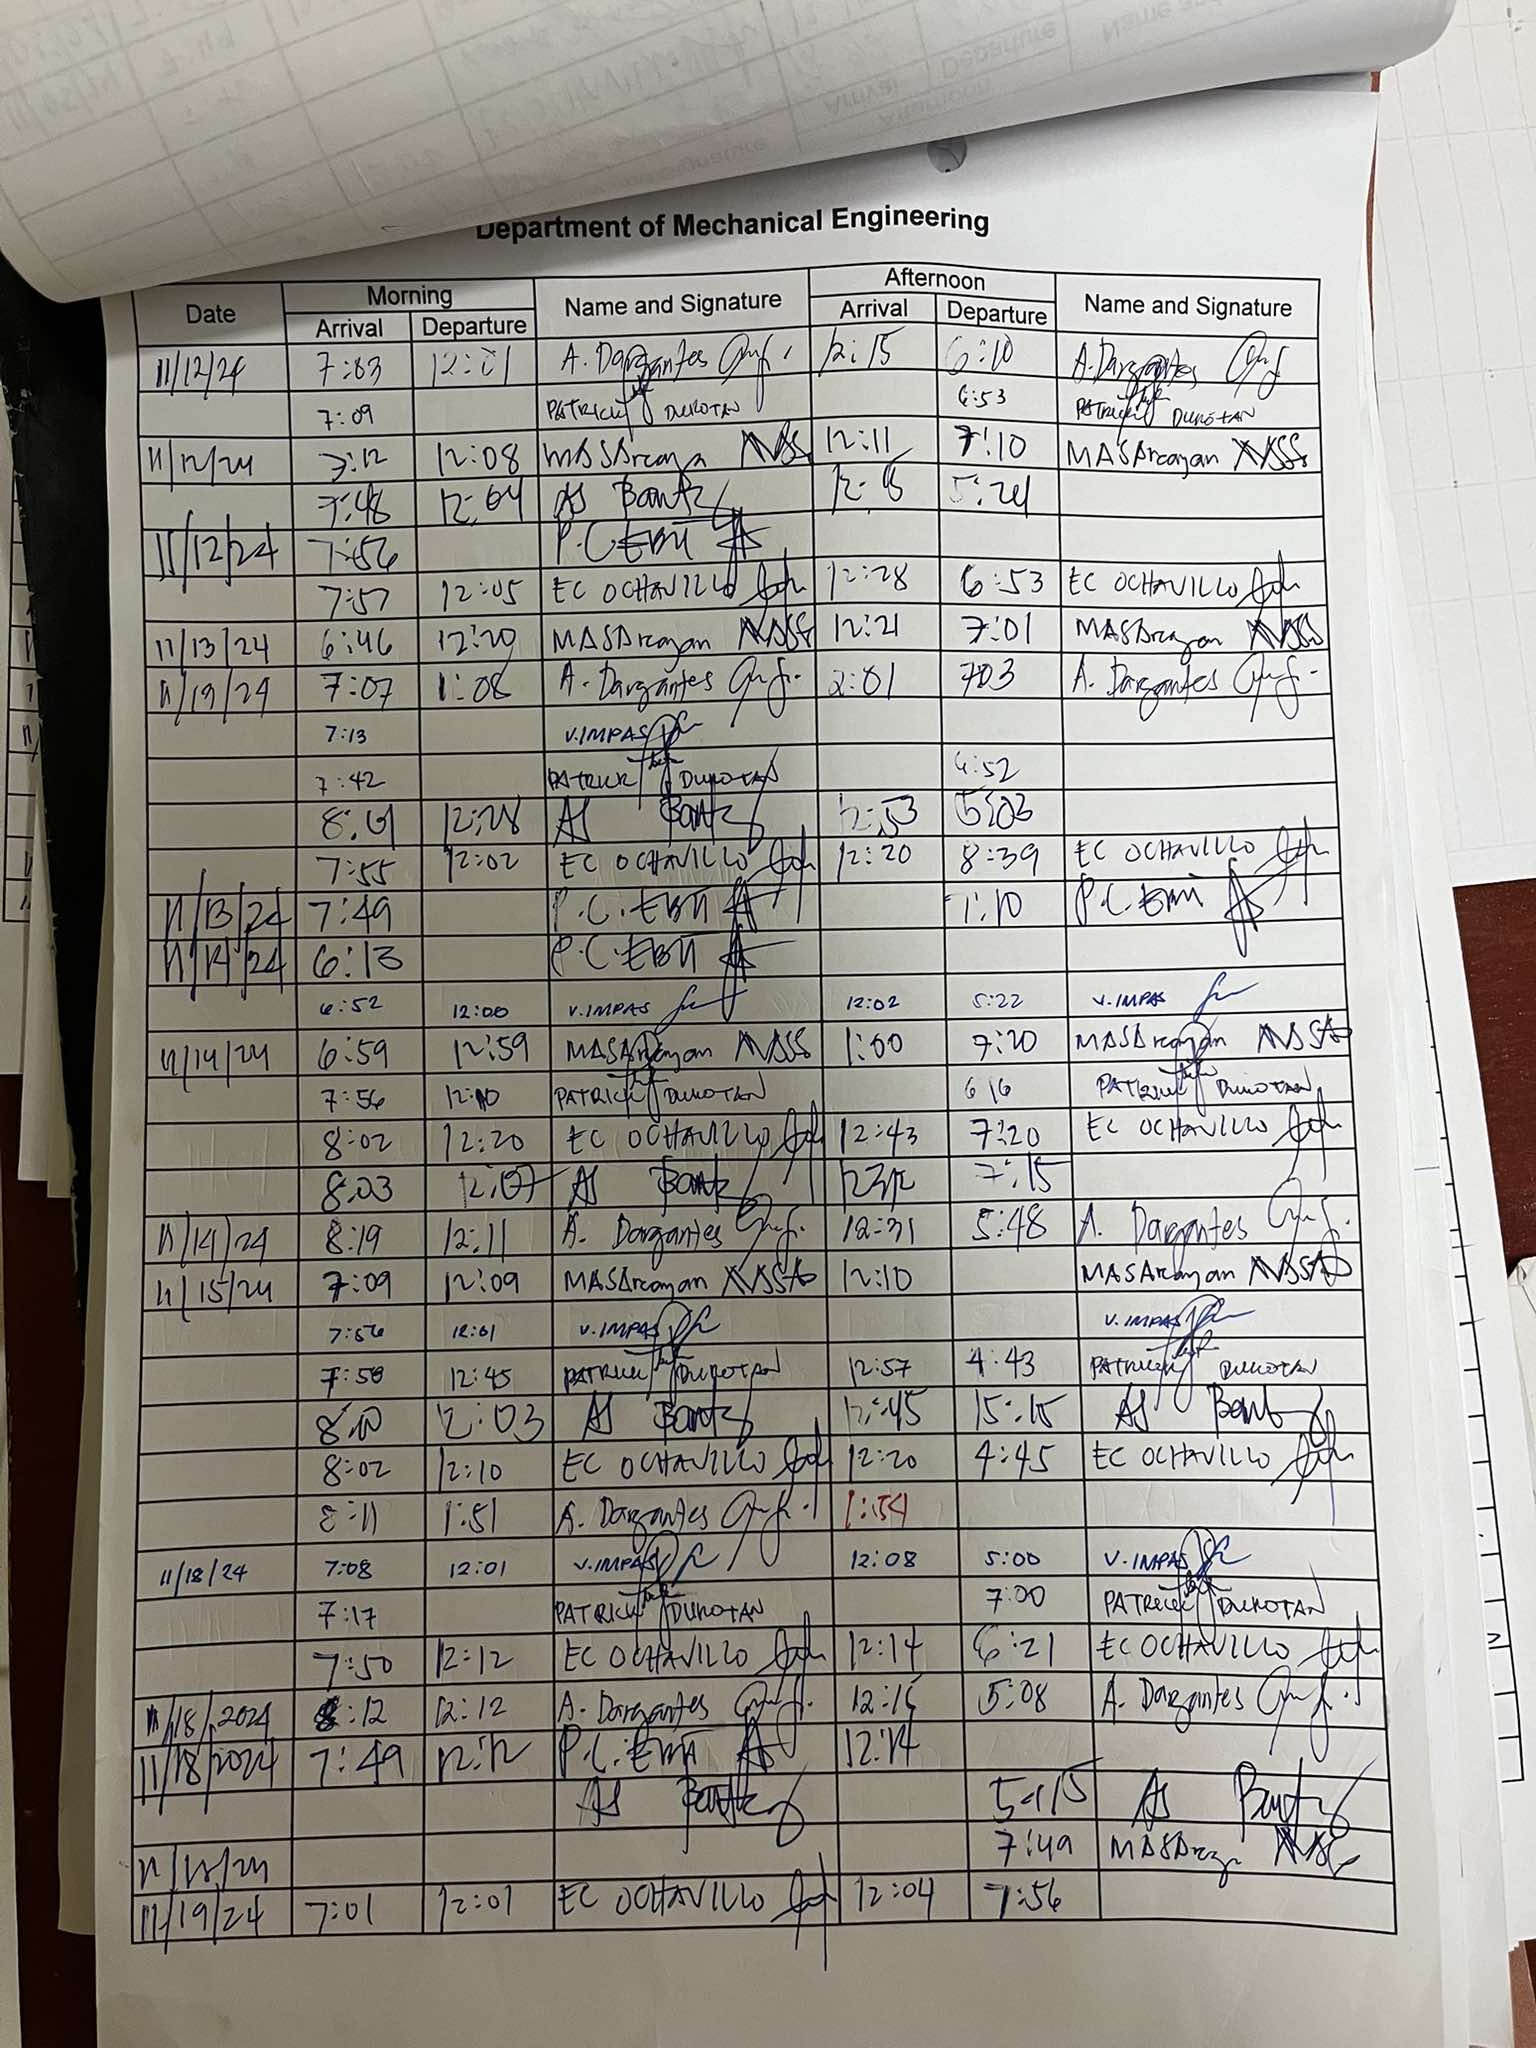 Department of Mechanical Engineering
Date Morning Name and Signature Afternoon Name and Signature
Arrival Departure Arrival Departure
11/12/24 7:03 12:01 A. Dargantes 12:15 6:10 A. Dargantes
7:09 PATRICK DUKOTAN 6:53 PATRICK DUKOTAN
11/12/24 7:12 12:08 MASArcaya 12:11 7:10 MASArcayan
7:48 12:04 AS Bantz 5:24
11/12/24 7:56 P.C. EBIT
7:57 12:05 EC OCHAVILLO 12:28 6:53 EC OCHAVILLO
11/13/24 6:46 12:20 MASArcayan 12:21 7:01 MASArcayan
11/13/24 7:07 1:08 A. Dargantes 2:01 703 A. Dargantes
7:13 V.IMPAS
7:42 PATRICK DUKOTAN 6:52
8:01 12:28 AS Bantz 12:53 5:03
7:55 12:02 EC OCHAVILLO 12:20 8:39 EC OCHAVILLO
11/13/24 7:49 P.C. EBIT 7:10 P.C. EBIT
11/14/24 6:13 P.C. EBIT
6:52 12:00 V.IMPAS 12:02 5:22 V.IMPAS
11/14/24 6:59 12:59 MASArcayan 1:00 7:20 MASArcayan
7:56 12:10 PATRICK DUKOTAN 6 16 PATRICK DUKOTAN
8:02 12:20 EC OCHAVILLO 12:43 7:20 EC OCHAVILLO
8:03 12:07 AS Bantz 7:15
11/14/24 8:19 12:11 A. Dargantes 12:31 5:48 A. Dargantes
11/15/24 7:09 12:09 MASArcayan 12:10 MASArcayan
7:56 12:01 V.IMPAS V.IMPAS
7:58 12:45 PATRICK DUKOTAN 12:57 4:43 PATRICK DUKOTAN
8:10 12:03 AS Bantz 12:45 15:15 AS Bantz
8:02 12:10 EC OCHAVILLO 12:20 4:45 EC OCHAVILLO
8:11 1:51 A. Dargantes 1:54
11/18/24 7:08 12:01 V.IMPAS 12:08 5:00 V.IMPAS
7:17 PATRICK DUKOTAN 7:00 PATRICK DUKOTAN
7:50 12:12 EC OCHAVILLO 12:14 6:21 EC OCHAVILLO
11/18/2024 8:12 12:12 A. Dargantes 12:15 5:08 A. Dargantes
11/18/2024 7:49 12:12 P.C. EBIT 12:14
AS Bantz AS Bantz
11/18/24 7:49 MASArcaya
11/19/24 7:01 12:01 EC OCHAVILLO 12:04 7:56